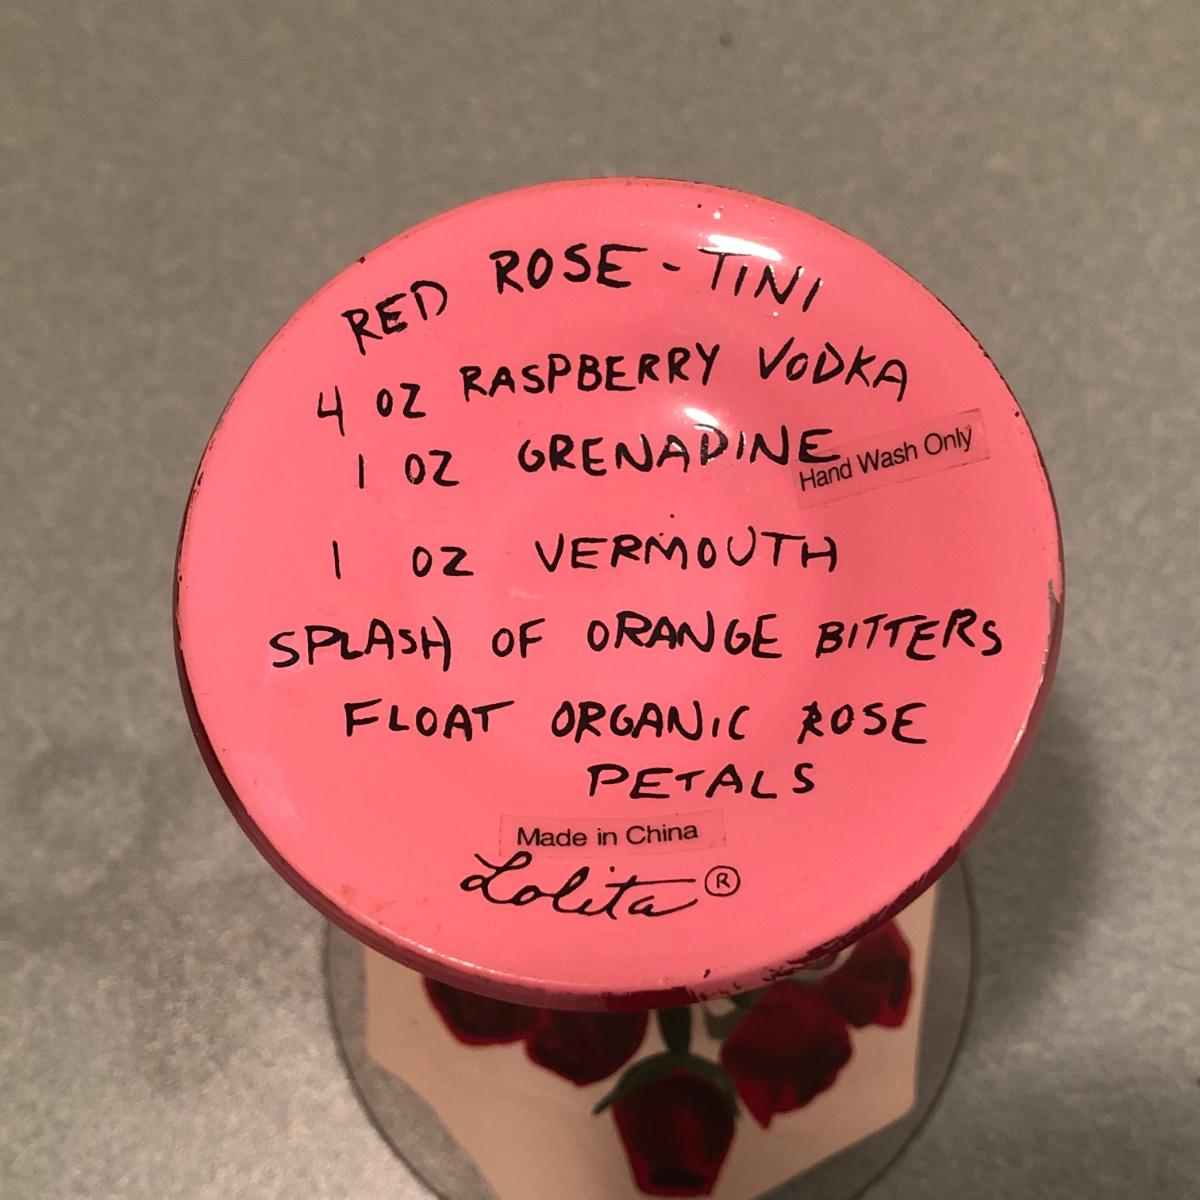 RED ROSE-TINI
4 OZ RASPBERRY VODKA
1 OZ GRENADINE
Hand Wash Only
1 OZ VERMOUTH
SPLASH OF ORANGE BITTERS
FLOAT ORGANIC ROSE
PETALS
Made in China
Lolita®